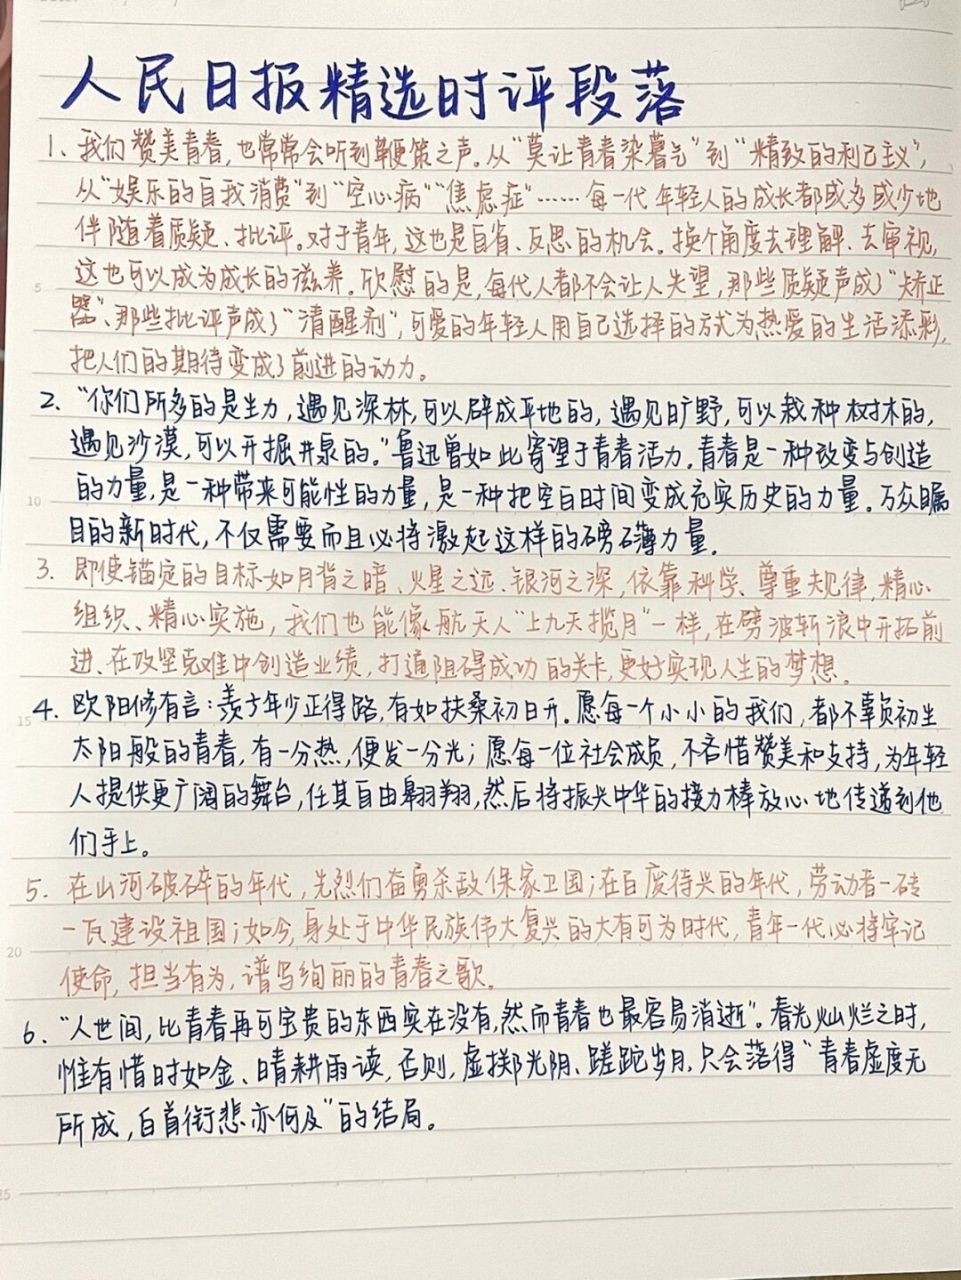 人民日报精选时评段落
1、我们赞美青春,也常常会听到鞭策之声。从“莫让青春染暮气”到“精致的利己主义”,
从“娱乐的自我消费”到“空心病”“焦虑症”……每一代年轻人的成长都或多或少地
伴随着质疑、批评。对于青年,这也是自省、反思的机会。换个角度去理解、去审视,
这也可以成为成长的滋养。欣慰的是,每代人都不会让人失望,那些质疑声成了“矫正
5
器”、那些批评声成了“清醒剂”,可爱的年轻人用自己选择的方式为热爱的生活添彩,
把人们的期待变成了前进的动力。
2、“你们所多的是生力,遇见深林,可以辟成平地的,遇见旷野,可以栽种树木的,
遇见沙漠,可以开掘井泉的。”鲁迅曾如此寄望于青春活力。青春是一种改变与创造
的力量,是一种带来可能性的力量,是一种把空白时间变成充实历史的力量。万众瞩
10
目的新时代,不仅需要而且必将激起这样的磅礴力量。
3、即使锚定的目标如月背之暗、火星之远、银河之深,依靠科学、尊重规律,精心
组织、精心实施,我们也能像航天人“上九天揽月”一样,在劈波斩浪中开拓前
进、在攻坚克难中创造业绩,打通阻碍成功的关卡,更好实现人生的梦想。
4、欧阳修有言:羡子年少正得路,有如扶桑初日升。愿每一个小小的我们,都不辜负初生
15
太阳般的青春,有一分热,便发一分光;愿每一位社会成员,不吝惜赞美和支持,为年轻
人提供更广阔的舞台,任其自由翱翔,然后将振兴中华的接力棒放心地传递到他
们手上。
5、在山河破碎的年代,先烈们奋勇杀敌保家卫国;在百废待兴的年代,劳动者一砖
一瓦建设祖国;如今,身处于中华民族伟大复兴的大有可为时代,青年一代必将牢记
20
使命,担当有为,谱写绚丽的青春之歌。
6、“人世间,比青春再可宝贵的东西实在没有,然而青春也最容易消逝”。春光灿烂之时,
惟有惜时如金、晴耕雨读,否则,虚掷光阴、蹉跎岁月,只会落得“青春虚度无
所成,白首衔悲亦何及”的结局。
25